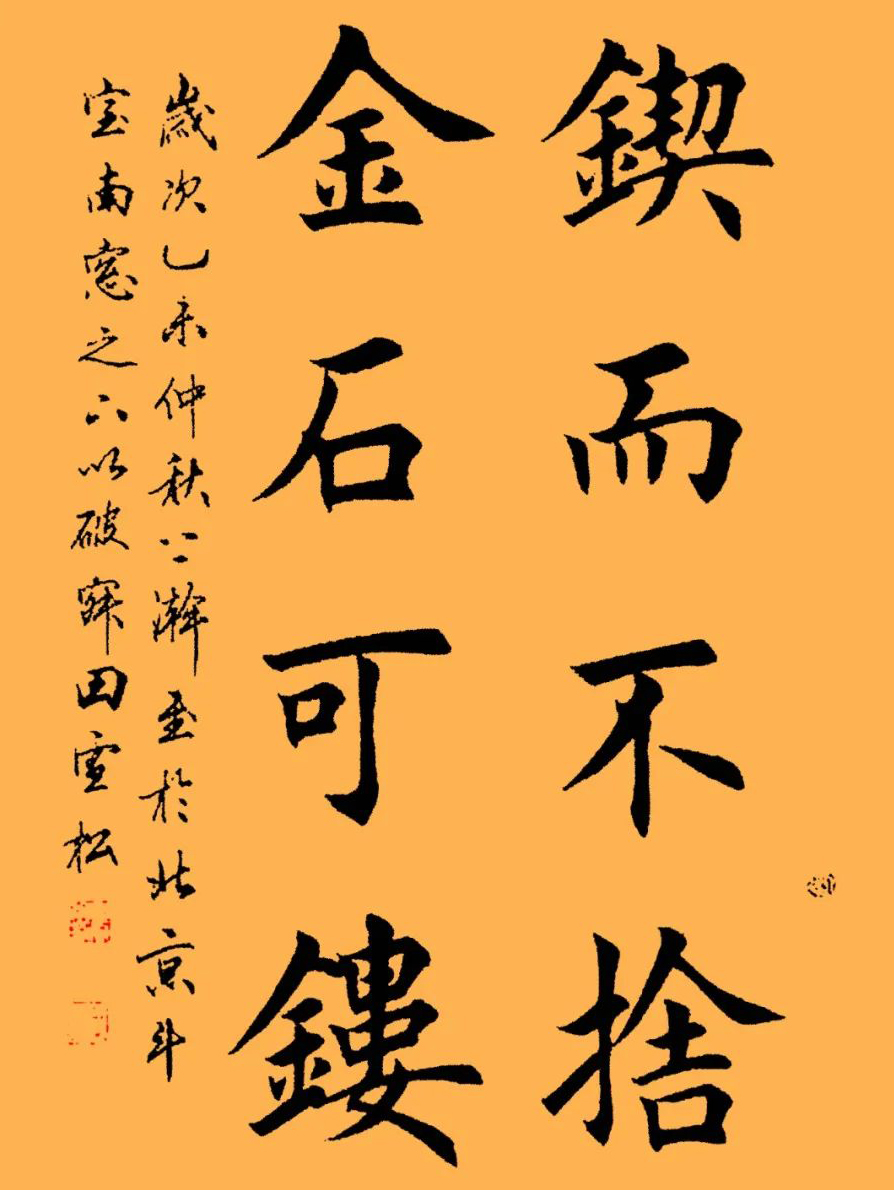 鍥而不捨
金石可鏤
歲次乙未仲秋上澣書於北京斗
室南窓之下以破寐田雪松